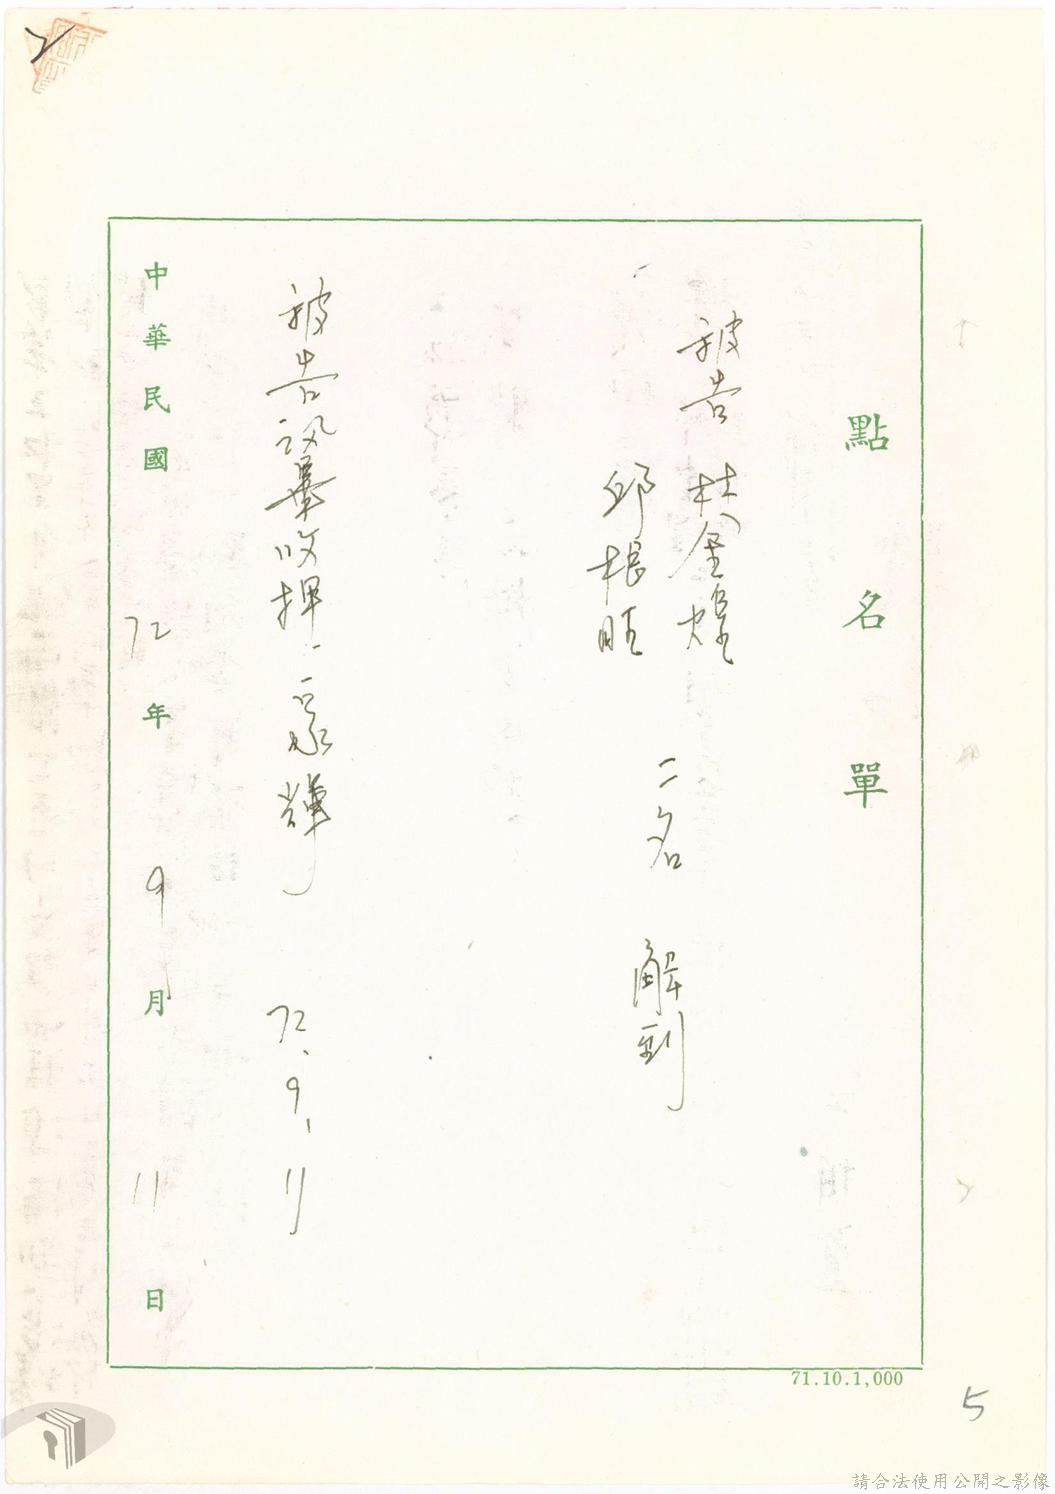 點名單
被告 杜金煌
邱根旺
二名 解到
被告訊畢收押
72、9、11
中華民國72年9月11日
71.10.1,000
5
請合法使用公開之影像